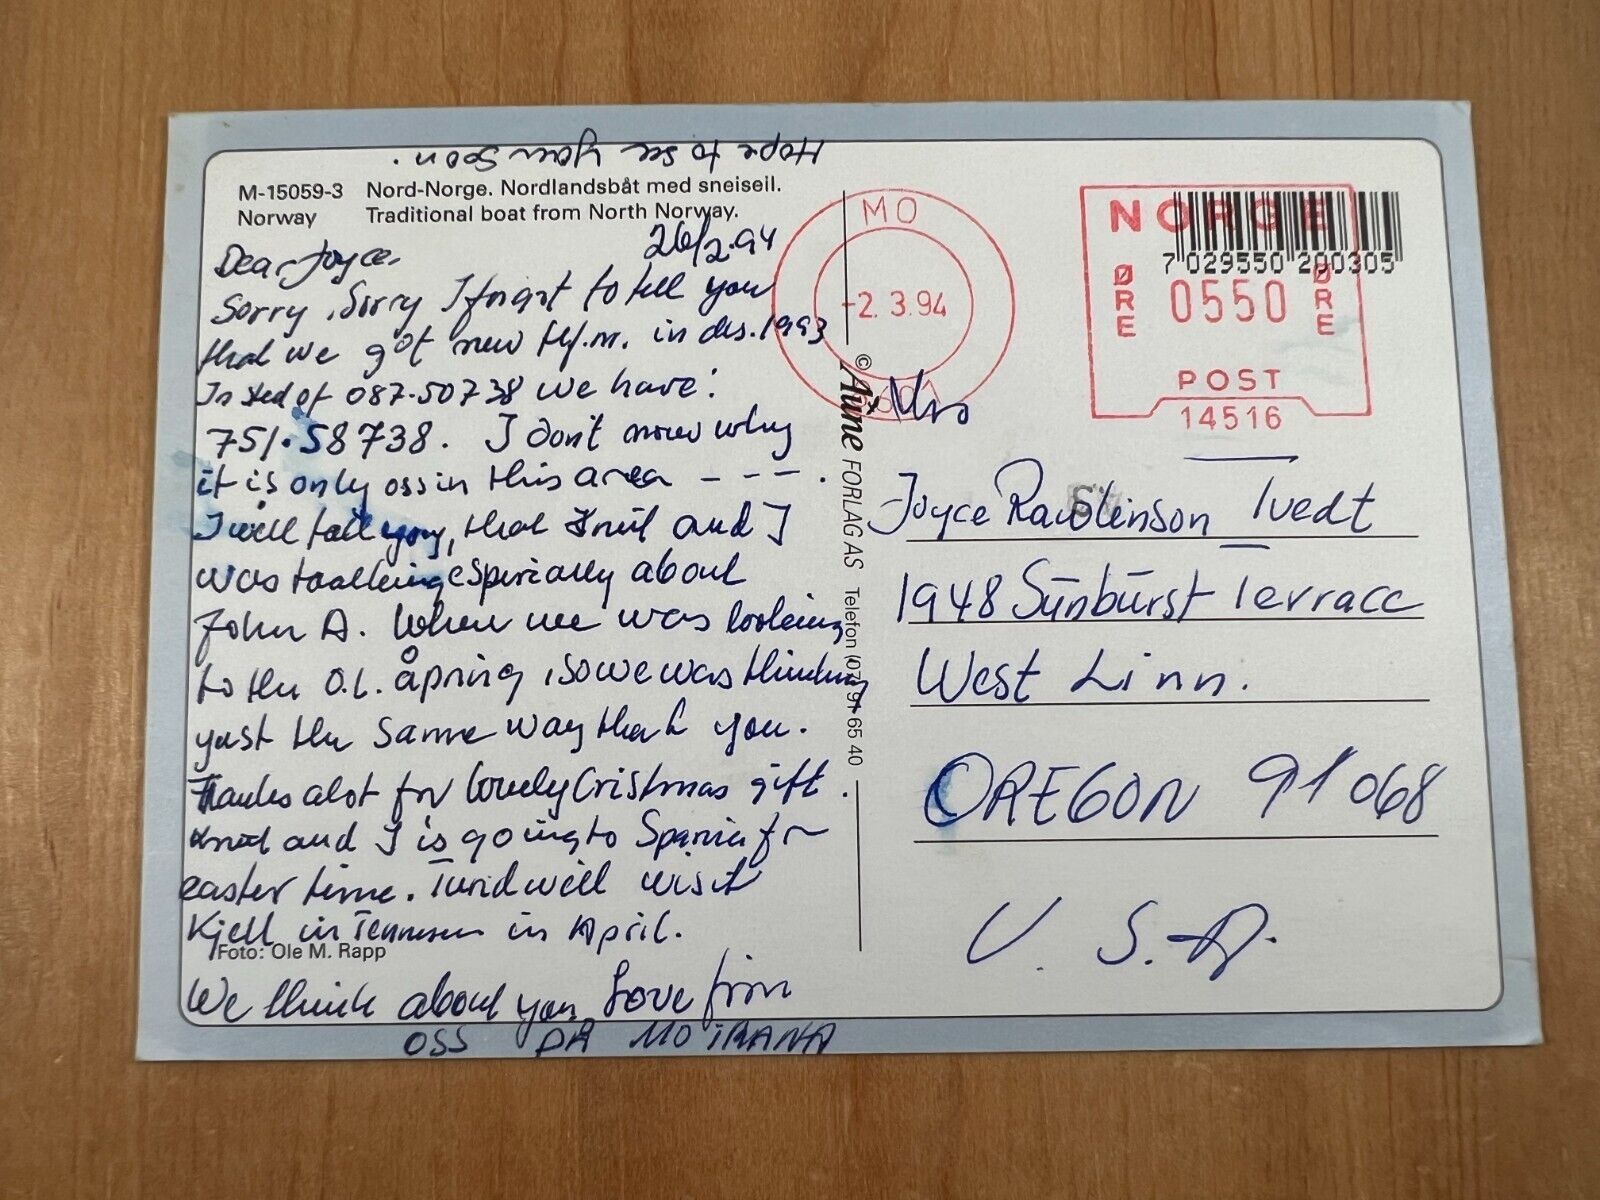 Hope to see you soon.
M-15059-3 Nord-Norge. Nordlandsbåt med sneiseil.
Norway Traditional boat from North Norway.
26/2.94
Dear Joyce.
Sorry, Sorry I forgot to tell you
that we got new tlf.nr. in des. 1993
In sted of 087.50738 we have:
751.58738. I don't now why
it is only oss in this area - - - .
I will tell you, that Knut and I
was taalking especially about
John A. When we was looking
to the O.L. åpning, so we was thinking
yust the same way that you.
Thanks alot for lovely Cristmas gift.
Knut and I is going to Spania for
easter time. Turid will visit
Kjell in Tennesen in April.
Foto: Ole M. Rapp
We think about you. Love from
OSS PÅ MO I RANA
© Aune FORLAG AS Telefon (07) 91 65 40
MO
-2.3.94
8601
NORGE
7 029550 200305
ØRE 0550 ØRE
POST
14516
Mrs
Joyce Rawlinson Tvedt
1948 Sunburst Terrace
West Linn.
OREGON 97068
U.S.A.